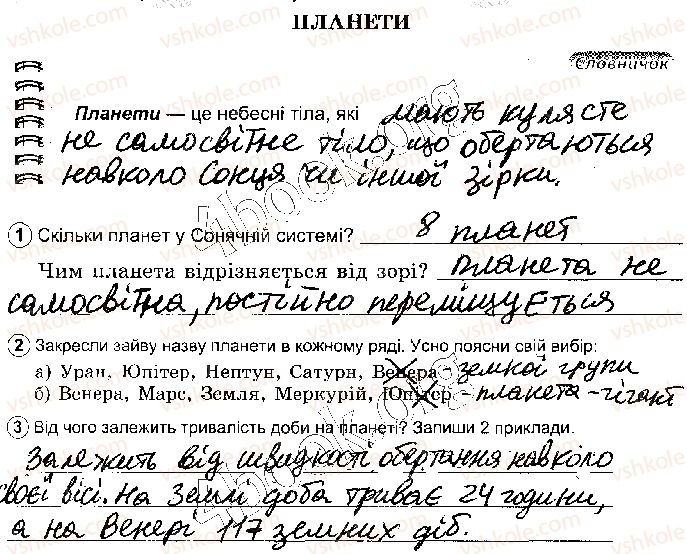 ПЛАНЕТИ
Словничок
Планети — це небесні тіла, які мають кулясте
не самосвітне тіло, що обертаються
навколо Сонця чи іншої зірки.
1 Скільки планет у Сонячній системі? 8 планет
Чим планета відрізняється від зорі? Планета не
самосвітна, постійно переміщується
2 Закресли зайву назву планети в кожному ряді. Усно поясни свій вибір:
а) Уран, Юпітер, Нептун, Сатурн, Венера - земної групи
б) Венера, Марс, Земля, Меркурій, Юпітер - планета - гігант
3 Від чого залежить тривалість доби на планеті? Запиши 2 приклади.
Залежить від швидкості обертання навколо
своєї вісі. На Землі доба триває 24 години,
а на Венері 117 земних діб.
4book.org
4book.org
vshkole.com